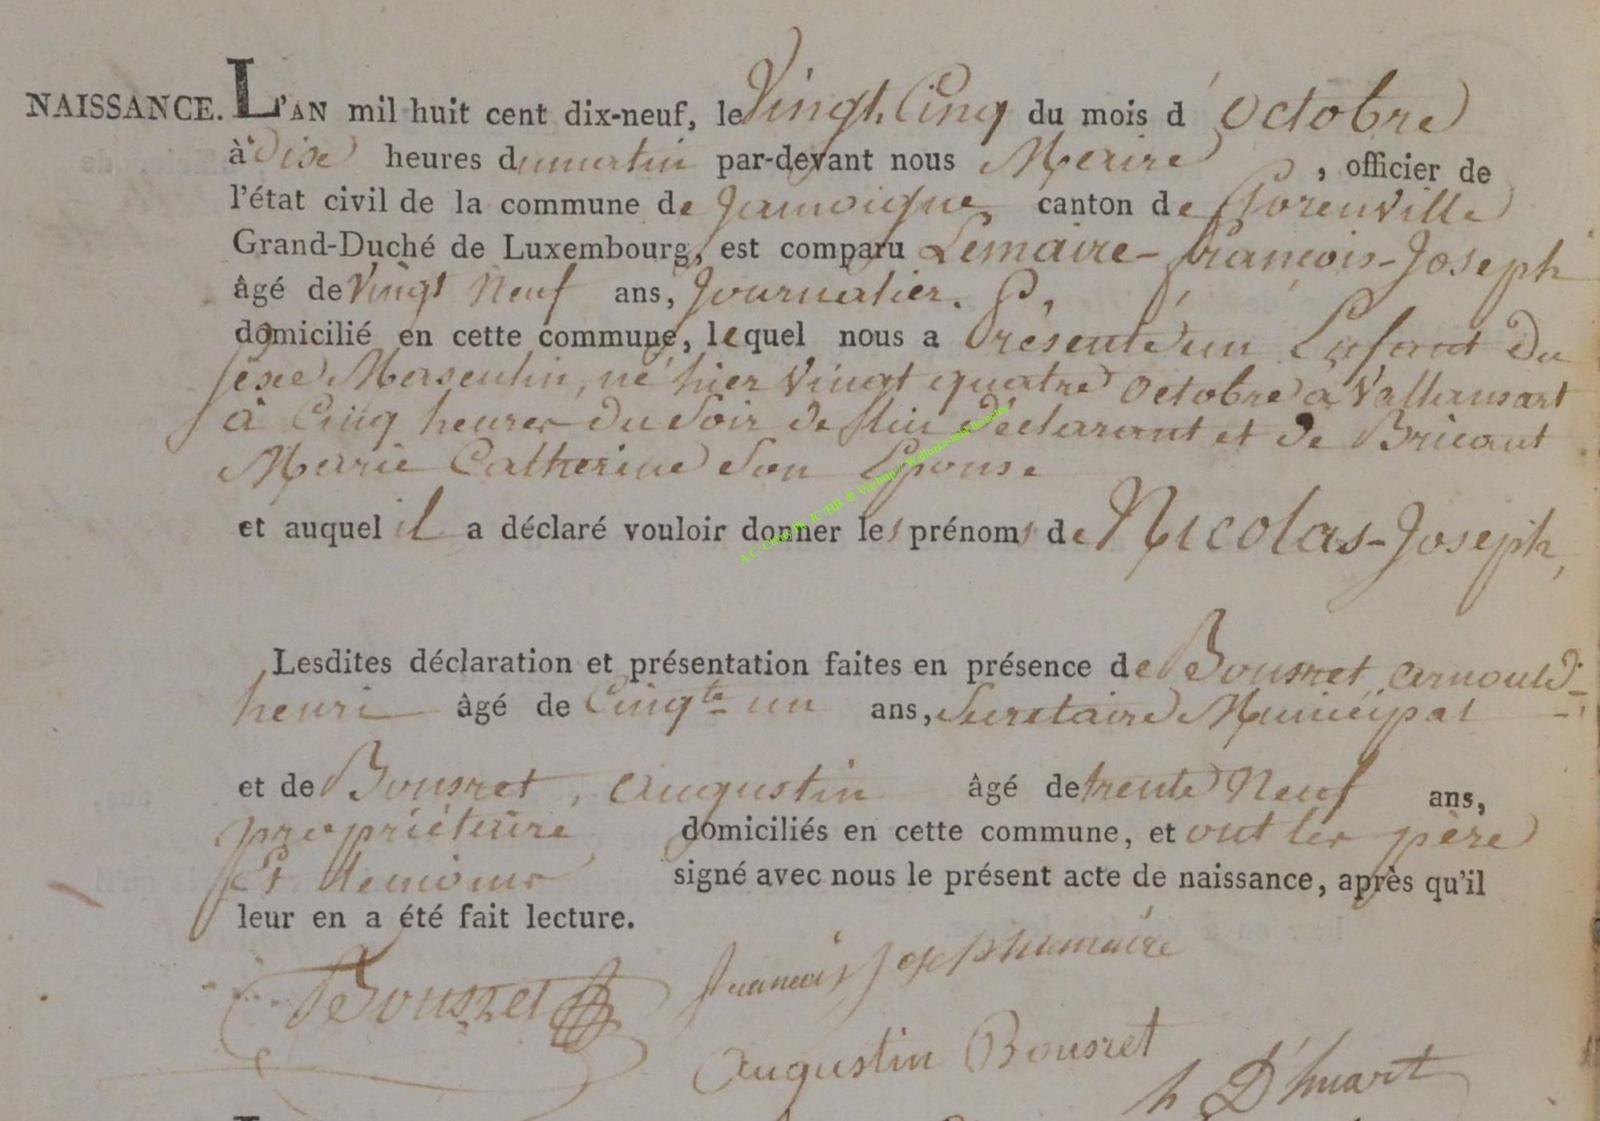 NAISSANCE. L'AN mil huit cent dix-neuf, le Vingt Cinq du mois d'Octobre
à dixe heures du matin par-devant nous Maire , officier de
l'état civil de la commune de Jamoigne canton de Florenville
Grand-Duché de Luxembourg, est comparu Lemaire-françois-Joseph
âgé de Vingt Neuf ans, Journalier.
domicilié en cette commune, lequel nous a Présenté un Enfant Du
sexe Masculin, né hier Vingt quatre Octobre à Vallansart
à Cinq heures du Soir de lui déclarant et de Bricant
Marie Catherine Son Epouse
et auquel il a déclaré vouloir donner les prénoms de Nicolas-Joseph,
Lesdites déclaration et présentation faites en présence de Bousret arnould-
henri âgé de Cinqte un ans, Secretaire Municipal
et de Bousret, augustin âgé de trente Neuf ans,
propriétaire domiciliés en cette commune, et ont les père
Et temoins signé avec nous le présent acte de naissance, après qu'il
leur en a été fait lecture.
Bousret francois Joseph lemaire
augustin Bousret
h D'huart